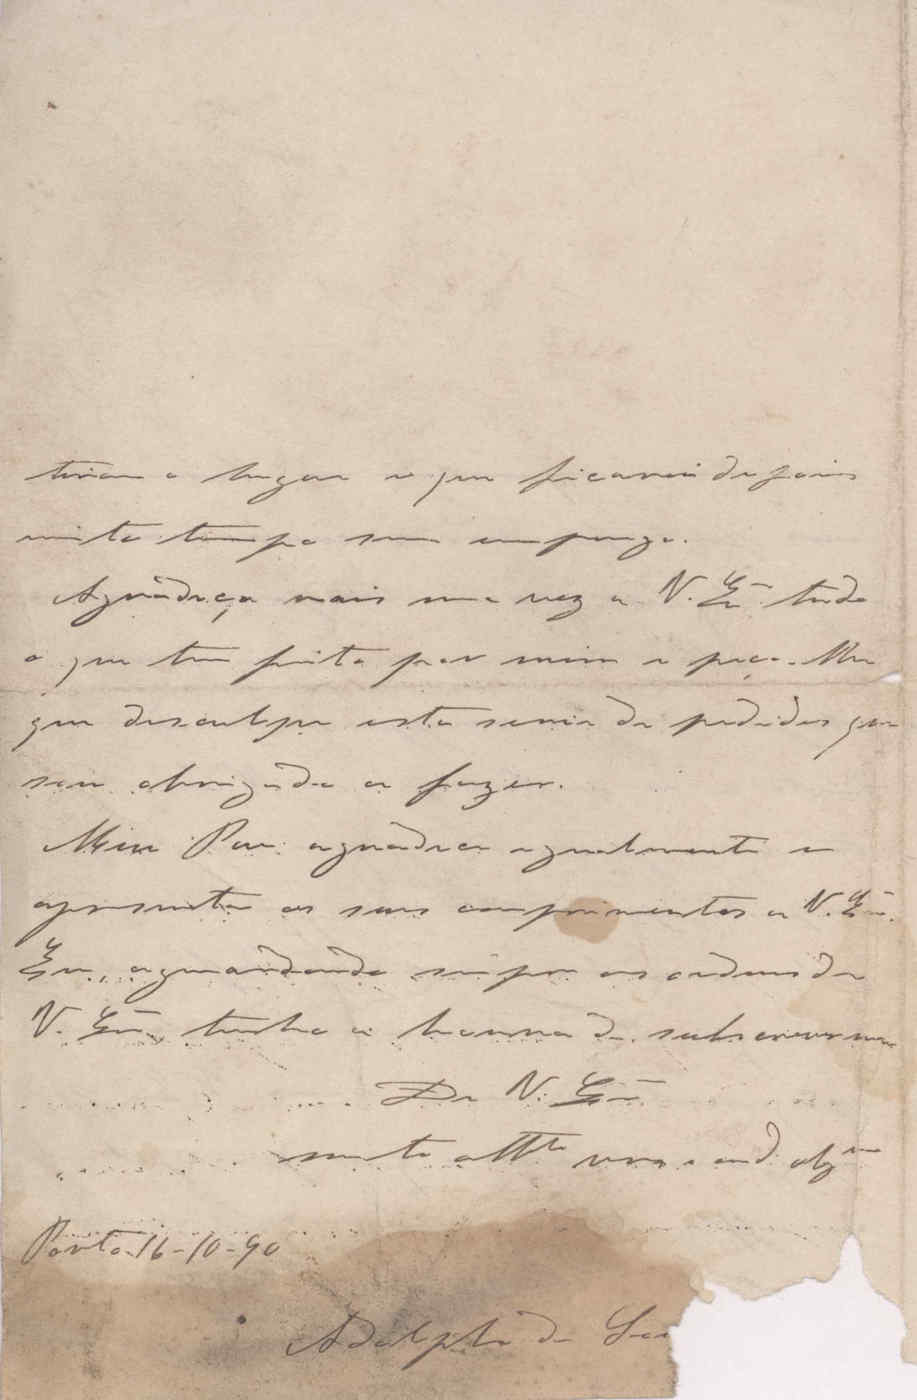 tirar o lugar e que ficarei depois
muito tempo sem emprego.
Agradeço mais uma vez a V. Exª tudo
o que tem feito por mim e peço-lhe
que desculpe esta serie de pedidos que
sou obrigado a fazer.
Meu Pae agradece egualmente e
apresenta os seus comprimentos a V. Exª.
Eu, aguardando sempre as ordens de
V. Exª, tenho a honra de subscrever-me
De V. Exª
muito attto vor e crdo obgmo
Porto 16-10-90
Adolpho de